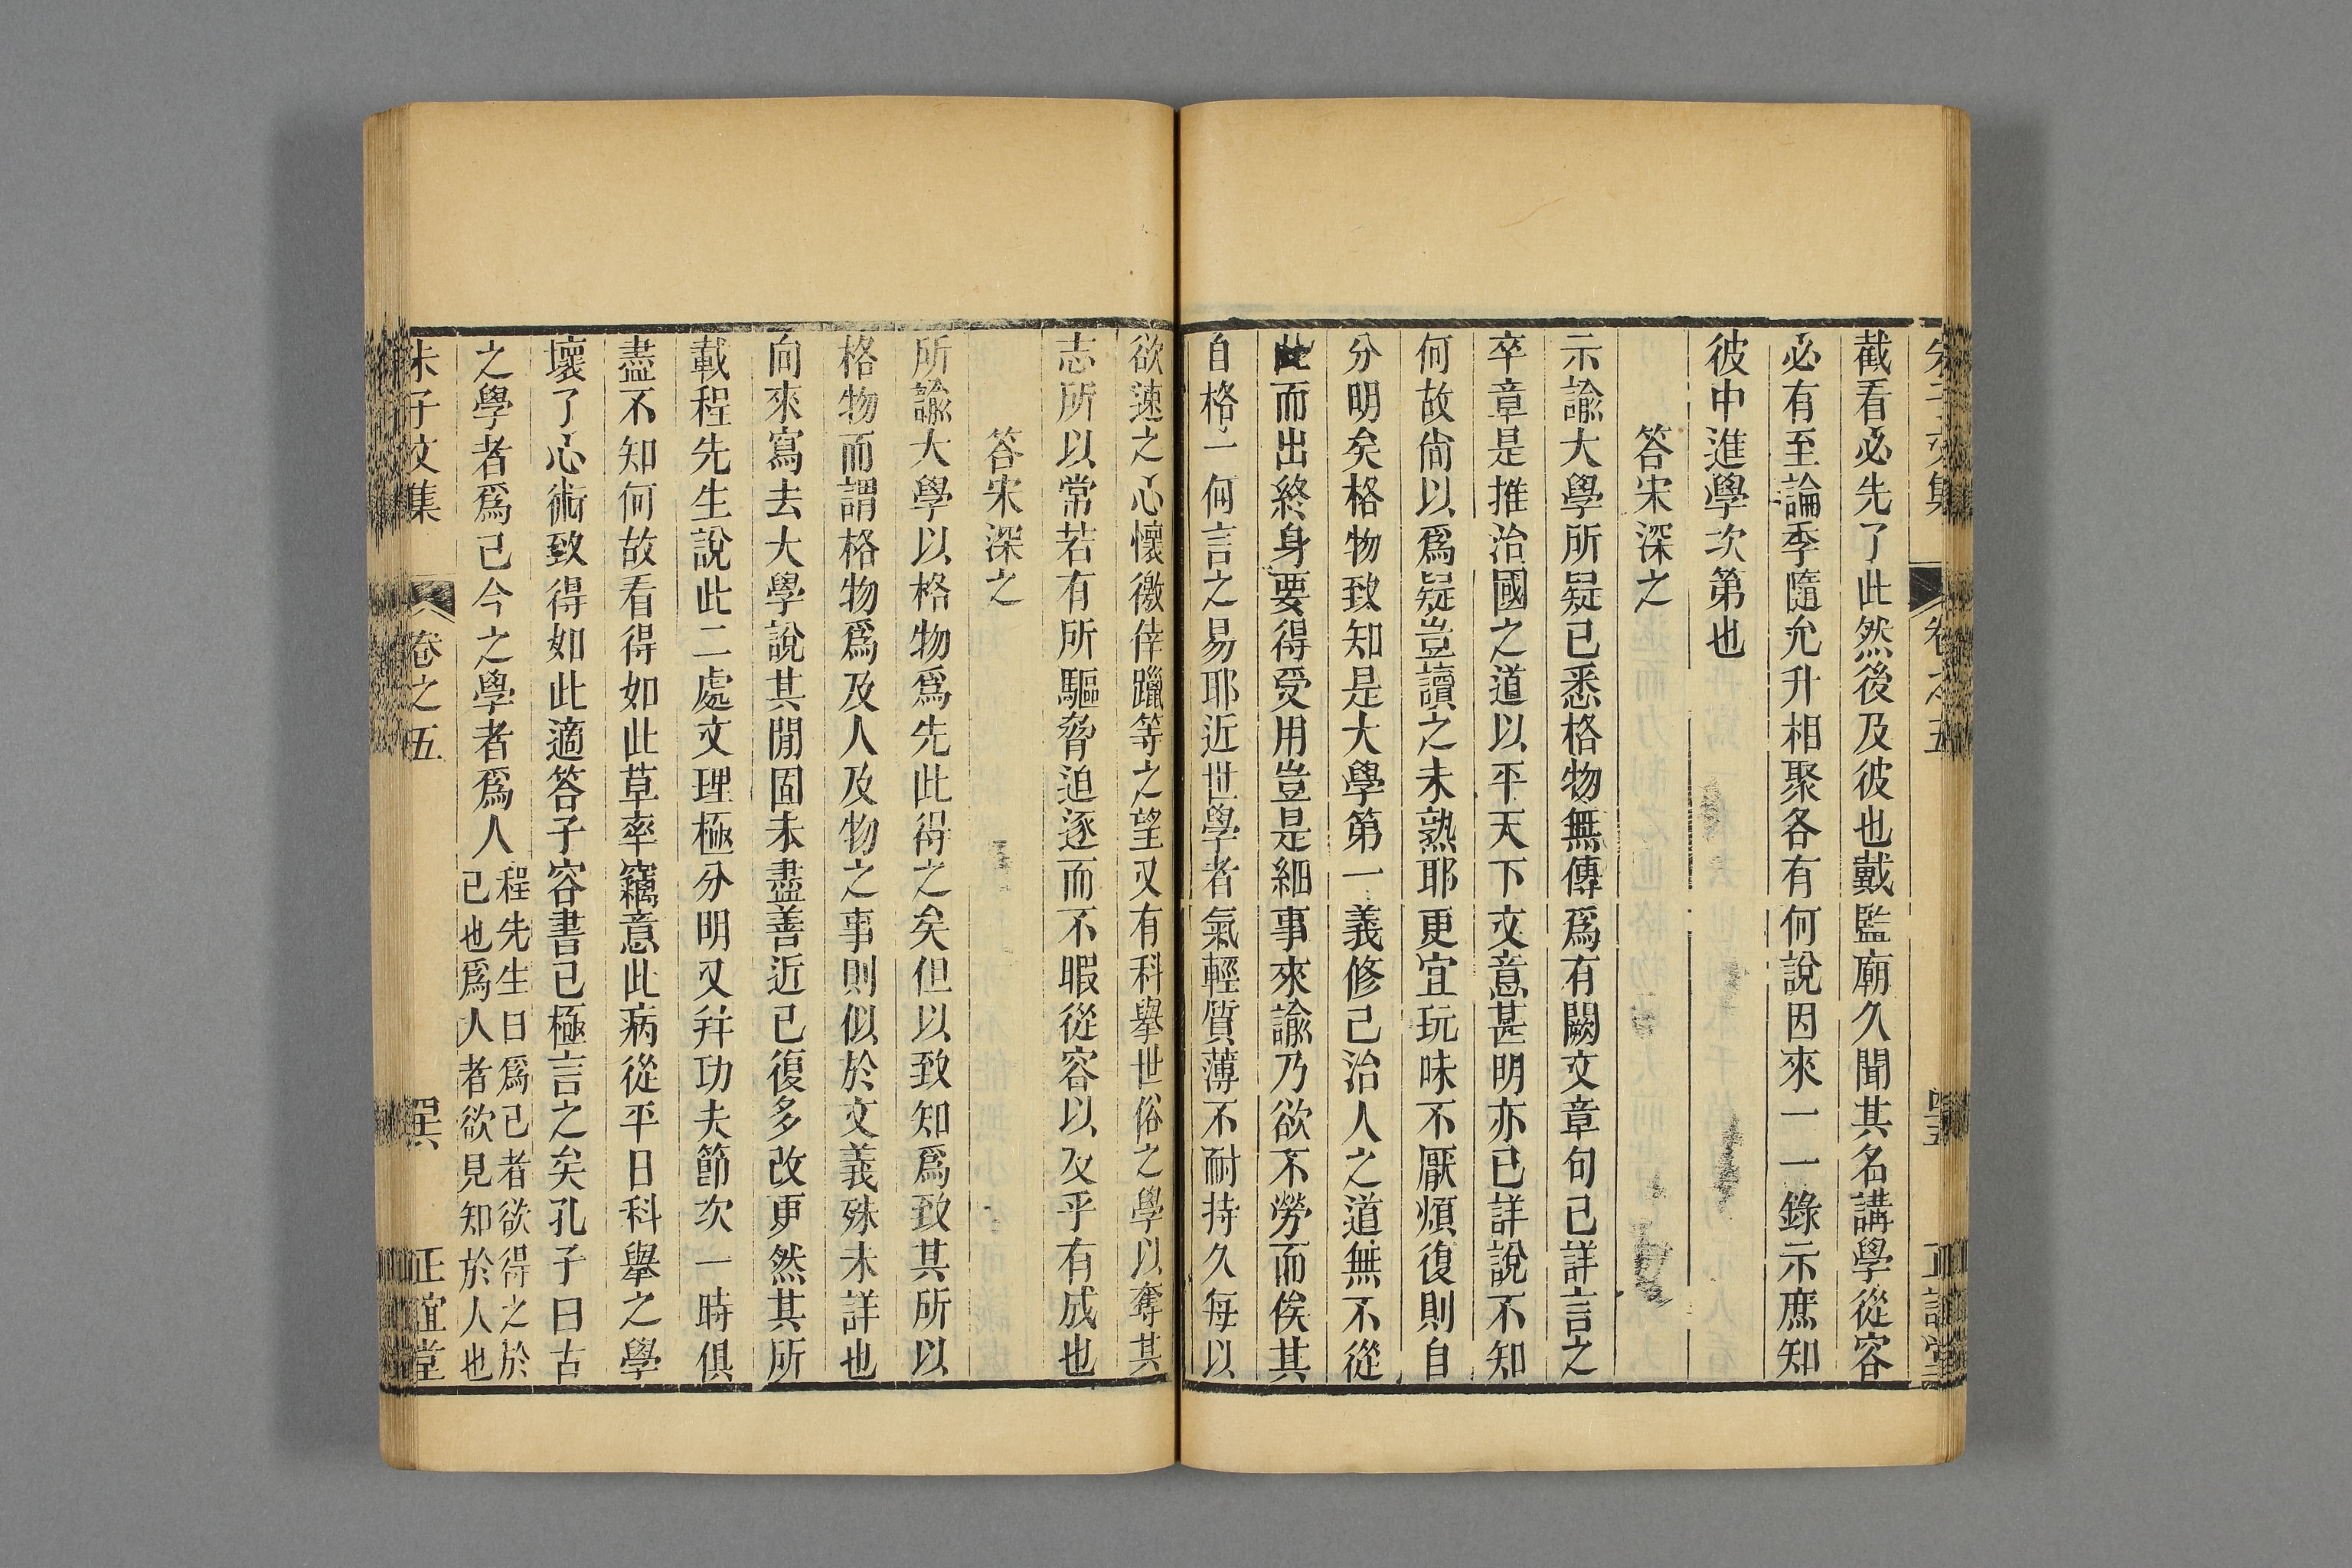 截看必先了此然後及彼也戴監廟久聞其名講學從容
必有至論季隨允升相聚各有何說因來一一錄示庶知
彼中進學次第也
答宋深之
示諭大學所疑已悉格物無傳爲有闕文章句已詳言之
卒章是推治國之道以平天下文意甚明亦已詳說不知
何故尙以爲疑豈讀之未熟耶更宜玩味不厭煩復則自
分明矣格物致知是大學第一義修己治人之道無不從
此而出終身要得受用豈是細事來諭乃欲不勞而俟其
自格一何言之易耶近世學者氣輕質薄不耐持久每以
欲速之心懷徼倖躐等之望又有科擧世俗之學以奪其
志所以常若有所驅脅迫逐而不暇從容以及乎有成也
答宋深之
所諭大學以格物爲先此得之矣但以致知爲致其所以
格物而謂格物爲及人及物之事則似於文義殊未詳也
向來寫去大學說其閒固未盡善近已復多改更然其所
載程先生說此二處文理極分明又幷功夫節次一時俱
盡不知何故看得如此草率竊意此病從平日科擧之學
壞了心術致得如此適答子容書已極言之矣孔子曰古
之學者爲己今之學者爲人
程先生曰爲己者欲得之於
己也爲人者欲見知於人也
朱子文集 卷之五 正誼堂